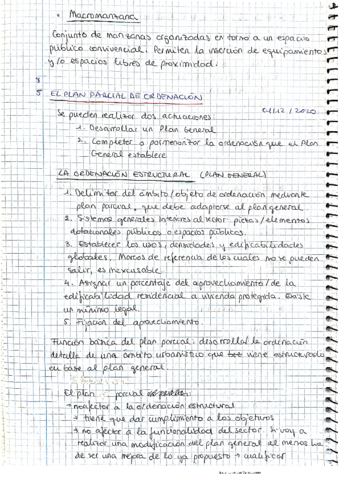 • Macromanzana
Conjunto de manzanas organizadas en torno a un espacio
público convivencial. Permiten la inserción de equipamientos
y/o espacios libres de proximidad.
5 EL PLAN PARCIAL DE ORDENACIÓN
/2020
Se pueden realizar dos actuaciones
1. Desarrollar un Plan General
2. Completar o pormenorizar la ordenación que el Plan
General establece
LA ORDENACIÓN ESTRUCTURAL (PLAN GENERAL)
1. Delimitar del ámbito/objeto de ordenación mediante
plan parcial, que debe adaptarse al plan general.
2. Sistemas generales interiores al sector: pistas/elementos
dotacionales públicos o espacios públicos.
3. Establecer los usos, densidades y edificabilidades
globales. Marcos de referencia de los cuales no se pueden
salir, es inexcusable
4. Asignar un porcentaje del aprovechamiento/de la
edificabilidad residencial a vivienda protegida. Existe
un mínimo legal.
5. Fijación del aprovechamiento.
Función básica del plan parcial: desarrollar la ordenación
detalle de un ámbito urbanístico que viene estructurado
en base al plan general
El plan parcial
→ no afectar a la ordenación estructural
→ tiene que dar cumplimiento a los objetivos
→ no afectar a la funcionalidad del sector. Si voy a
realizar una modificación del plan general al menos ha
de ser una mejora de lo ya propuesto → cualificar